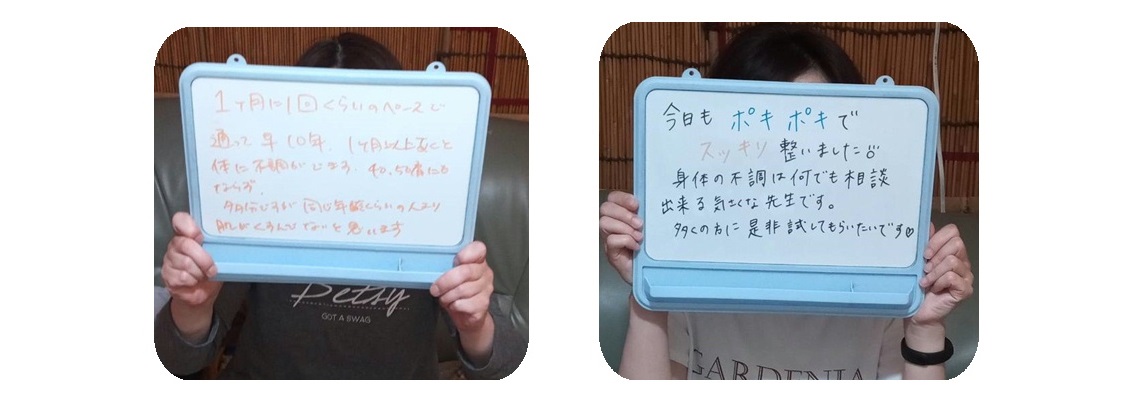 1ヶ月に1回くらいのペースで
通って 年10年、1ヶ月以上あくと
体に不調がでます。
ならず、
同じ年齢くらいの人より
ないと思います
Betsy
GOT A SWAG
今日も ポキポキで
スッキリ 整いました
身体の不調は何でも相談
出来る気さくな先生です。
多くの方に是非試してもらいたいです♡
GARDENIA